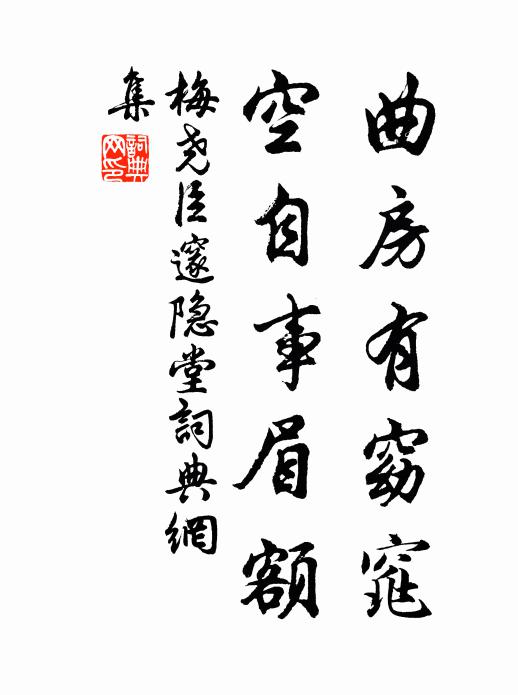 曲房有窈窕
空自事眉額
梅尧臣邃隐堂詞典網
集
詞典网印